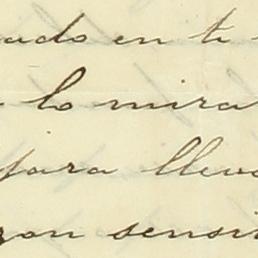 ado en ti
lo mira
para lleva
zon sensi